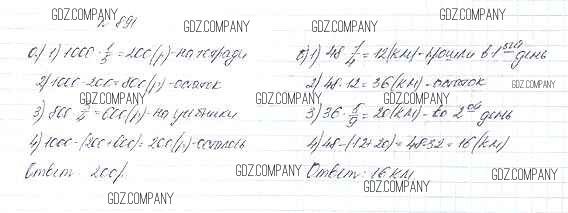 GDZ.COMPANY
№ 891
GDZ.COMPANY
GDZ.COMPANY
а) 1) 1000 · 1/5 = 200(р)-на тетради
2) 1000-200=800(р)-остаток
GDZ.COMPANY
GDZ.COMPANY
3) 800 · 3/4 = 600(р)-на учебники
4) 1000-(200+600)=200(р)-осталось
GDZ.COMPANY
GDZ.COMPANY
Ответ: 200р.
GDZ.COMPANY
GDZ.COMPANY
б) 1) 48 · 1/4 = 12(км)-прошли в 1 ый день
2) 48-12=36(км)-остаток
GDZ.COMPANY
GDZ.COMPANY
3) 36 · 5/9 = 20(км)-во 2 ой день
4) 48-(12+20)=48-32=16(км)
GDZ.COMPANY
Ответ: 16 км
GDZ.COMPANY
GDZ.COMPANY